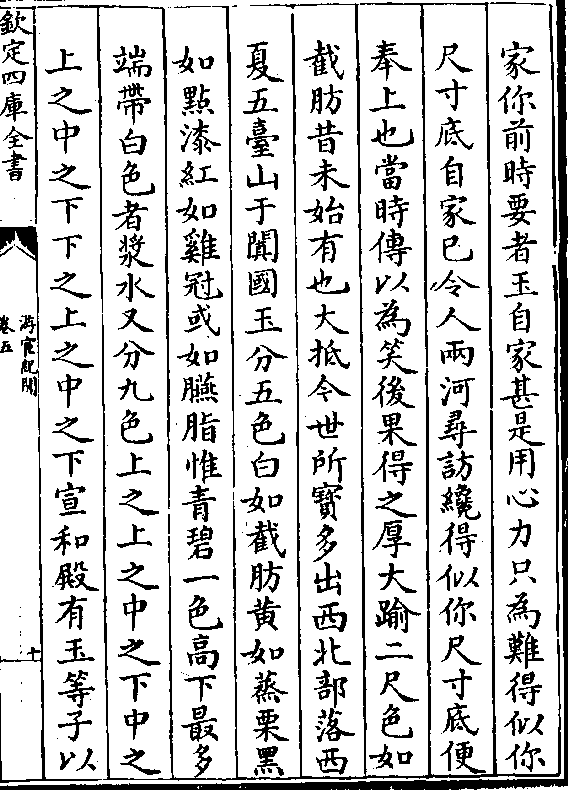 家你前時要者玉自家甚是用心力只為難得似你
尺寸底自家已令人兩河尋訪纔得似你尺寸底便
奉上也當時傳以為笑後果得之厚大踰二尺色如
截肪昔未始有也大抵今世所寶多出西北部落西
夏五臺山于闐國玉分五色白如截肪黄如蒸栗黑
如點漆紅如雞冠或如臙脂惟青碧一色高下最多
端帶白色者漿水又分九色上之上之中之下中之
上之中之下下之上之中之下宣和殿有玉等子以
欽定四庫全書
游宦紀聞
卷五
十